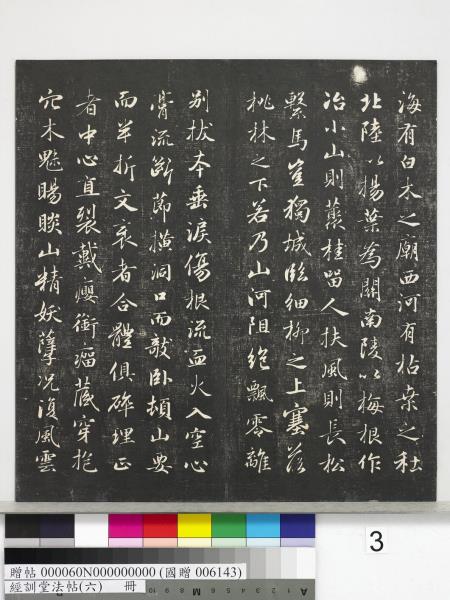 海有白木之廟西河有枯桑之社
北陸以楊葉為關南陵以梅根作
冶小山則叢桂留人扶風則長松
繫馬豈獨城臨細柳之上塞落
桃林之下若乃山河阻絕飄零離
別拔本垂淚傷根流血火入空心
膏流斷節橫洞口而敧臥頓山要
而半折文衺者合體俱碎理正
者中心直裂戴癭銜瘤藏穿抱
穴木魅睗睒山精妖孽況復風雲
3
贈帖 000060N000000000 (國贈 006143)
經訓堂法帖(六) 冊